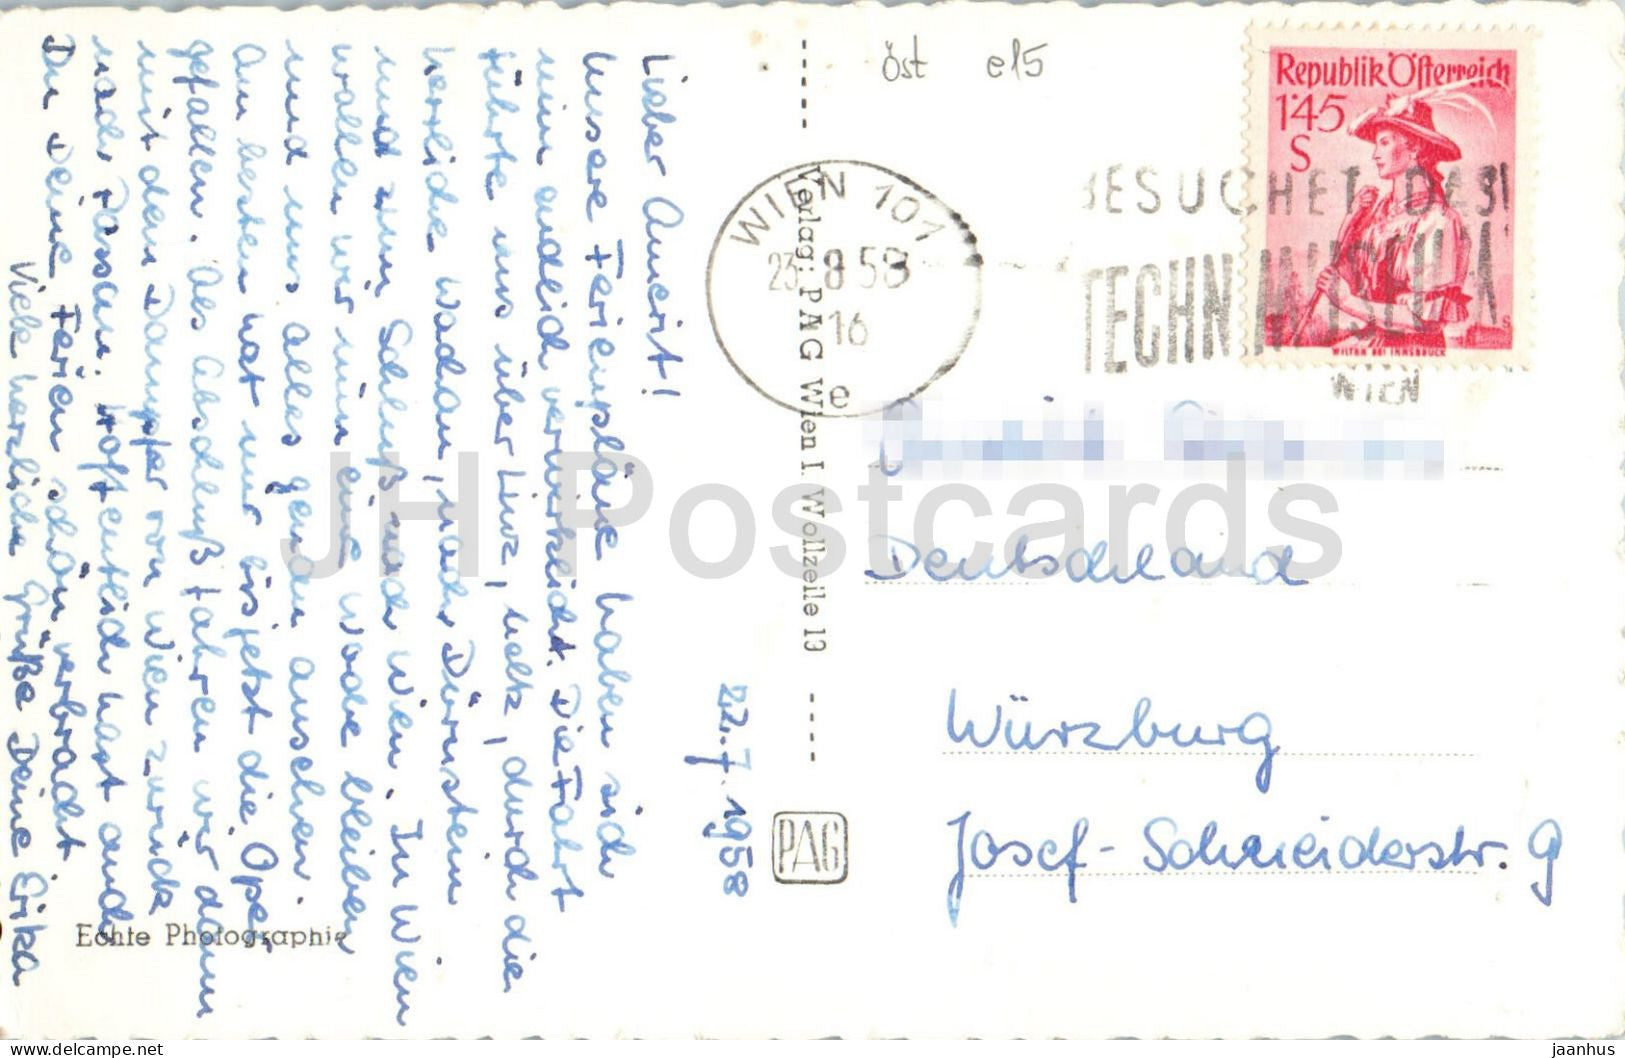 Lieber Annerit!
Unsere Ferienpläne haben sich
nun endlich verwirklicht. Die Fahrt
führte uns über Linz, Melk, durch die
herrliche Wachau, nach Dürnstein
und zum Schluß nach Wien. In Wien
wollen wir nun eine Woche bleiben
und uns alles genau ansehen.
Am besten hat mir bisjetzt die Oper
gefallen. Als Abschluß fahren wir dann
mit dem Dampfer von Wien zurück
nach Passau. Hoffentlich hast auch
Du Deine Ferien schön verbracht
Viele herzliche Grüße Deine Erika
22.7.1958
Echte Photographie
Verlag: PAG Wien I. Wollzeile 13
PAG
öst e15
WIEN 101
23. 8 58 16
e
BESUCHET DAS
TECHN. MUSEUM
WIEN
Republik Österreich
1·45
S
WILTEN BEI INNSBRUCK
Deutschland
Würzburg
Josef-Schneiderstr. 9
JH Postcards
Delcampe.net
jaanhus